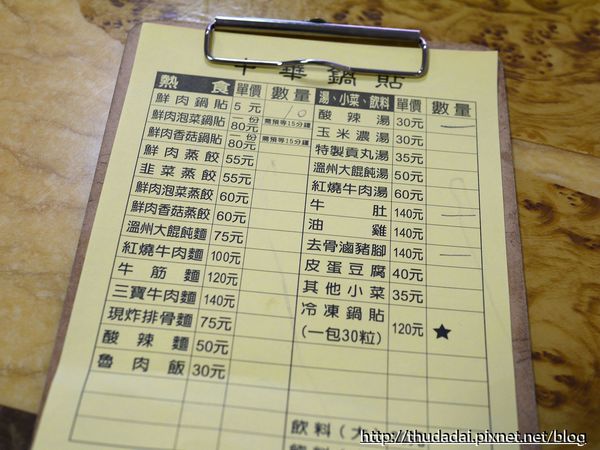 中華鍋貼
熱食 單價 數量
鮮肉鍋貼 5元 10
鮮肉泡菜鍋貼 一份80元 需預等15分鐘
鮮肉香菇鍋貼 一份80元 需預等15分鐘
鮮肉蒸餃 55元
韭菜蒸餃 55元
鮮肉泡菜蒸餃 60元
鮮肉香菇蒸餃 60元
溫州大餛飩麵 75元
紅燒牛肉麵 100元
牛筋麵 120元
三寶牛肉麵 140元
現炸排骨麵 75元
酸辣麵 50元
魯肉飯 30元
湯、小菜、飲料 單價 數量
酸辣湯 30元 一
玉米濃湯 30元
特製貢丸湯 35元
溫州大餛飩湯 50元
紅燒牛肉湯 60元
牛肚 140元 一
油雞 140元
去骨滷豬腳 140元 一
皮蛋豆腐 40元
其他小菜 35元
冷凍鍋貼
(一包30粒) 120元 ★
飲料(大
http://thudadai.pixnet.net/blog